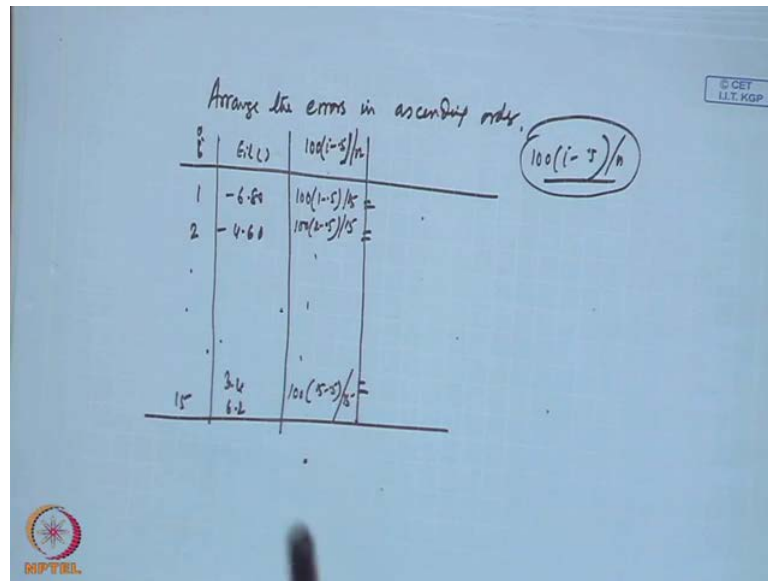 © CET
I.I.T. KGP
Arrange the errors in ascending order.
i | 100(i-.5)/n
100(i-.5)/n
1 | -6.80 | 100(1-.5)/15 =
2 | -4.60 | 100(2-.5)/15 =
3.4
15 | 6.2 | 100(15-.5)/15 =
NPTEL